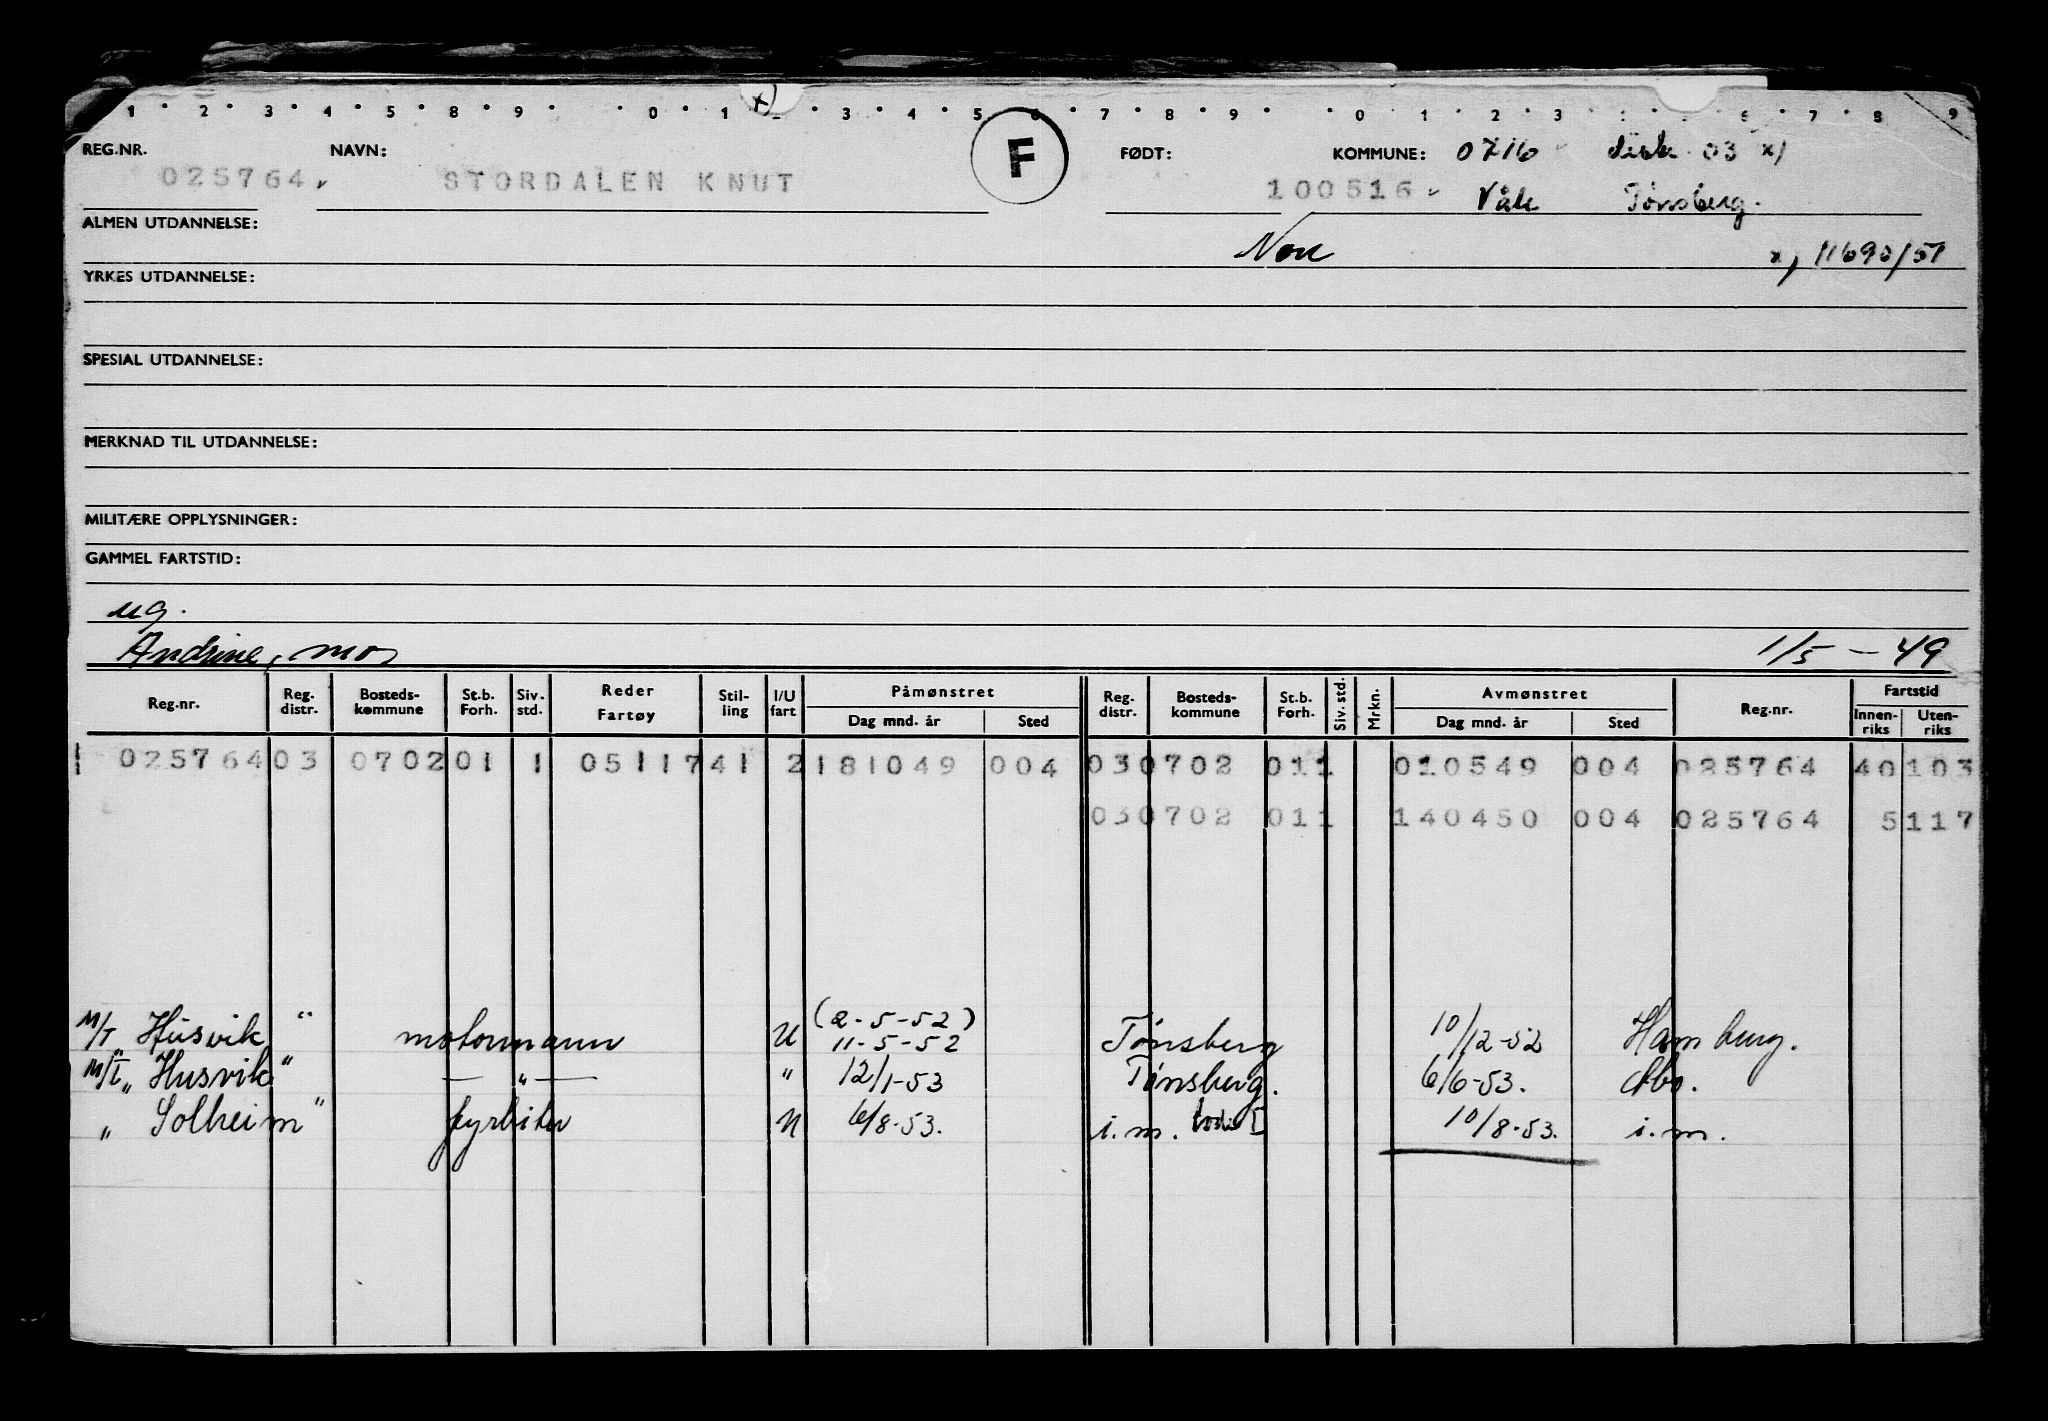 1 2 3 4 5 8 9 0 1 x) 3 4 5 6 7 8 9 0 1 2 3 6 7 8 9
REG.NR. NAVN: F FØDT: KOMMUNE: 0716 distr 03 x)
025764 STORDALEN KNUT 100516 Våle Tønsberg.
ALMEN UTDANNELSE: Nor x) 11690/51
YRKES UTDANNELSE:
SPESIAL UTDANNELSE:
MERKNAD TIL UTDANNELSE:
MILITÆRE OPPLYSNINGER:
GAMMEL FARTSTID:
ug.
Andrine, mor 1/5 - 49
Reg.nr. Reg. distr. Bosteds-kommune St.b. Forh. Siv. std. Reder Fartøy Stil-ling I/U fart Påmønstret Dag mnd. år Sted Reg. distr. Bosteds-kommune St.b. Forh. Siv. std. Mrkn. Avmønstret Dag mnd. år Sted Reg.nr. Fartstid Innen-riks Uten-riks
025764 03 0702 01 1 051174 1 2 181049 004 03 0702 011 010549 004 025764 40 103
03 0702 011 140450 004 025764 5 117
M/T "Husvik" motormann U (2-5-52) 11-5-52 Tønsberg 10/12-52 Hamburg.
M/T "Husvik" — " — " 12/1-53 Tønsberg. 6/6-53. Abo.
" Solheim" fyrbøter U 6/8-53. i.m. 10/8-53. i.m.